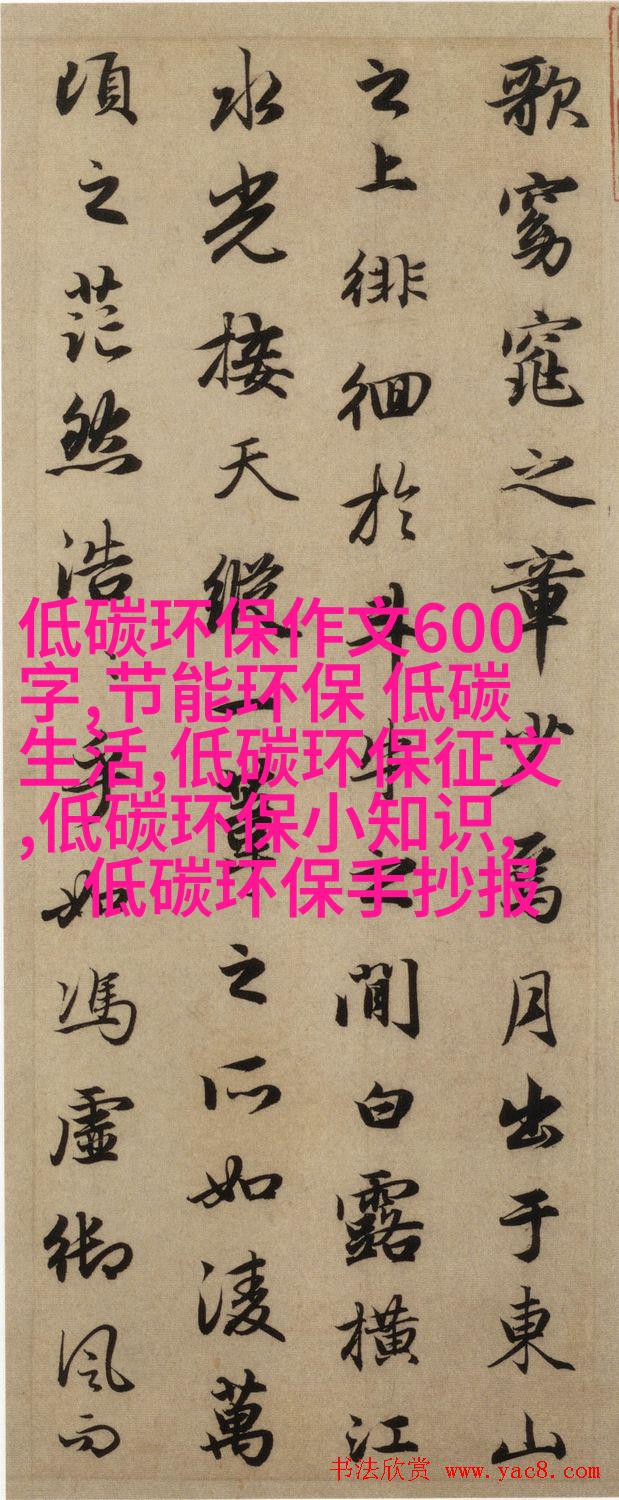 歌窈窕之章少焉月出于東山
之上徘徊於斗牛之間白露橫江
水光接天縱一葦之所如淩萬
頃之茫然浩〻乎如馮虛御風而
低碳环保作文600
字,节能环保 低碳
生活,低碳环保征文
,低碳环保小知识,
低碳环保手抄报
书法欣赏 www.yac8.com